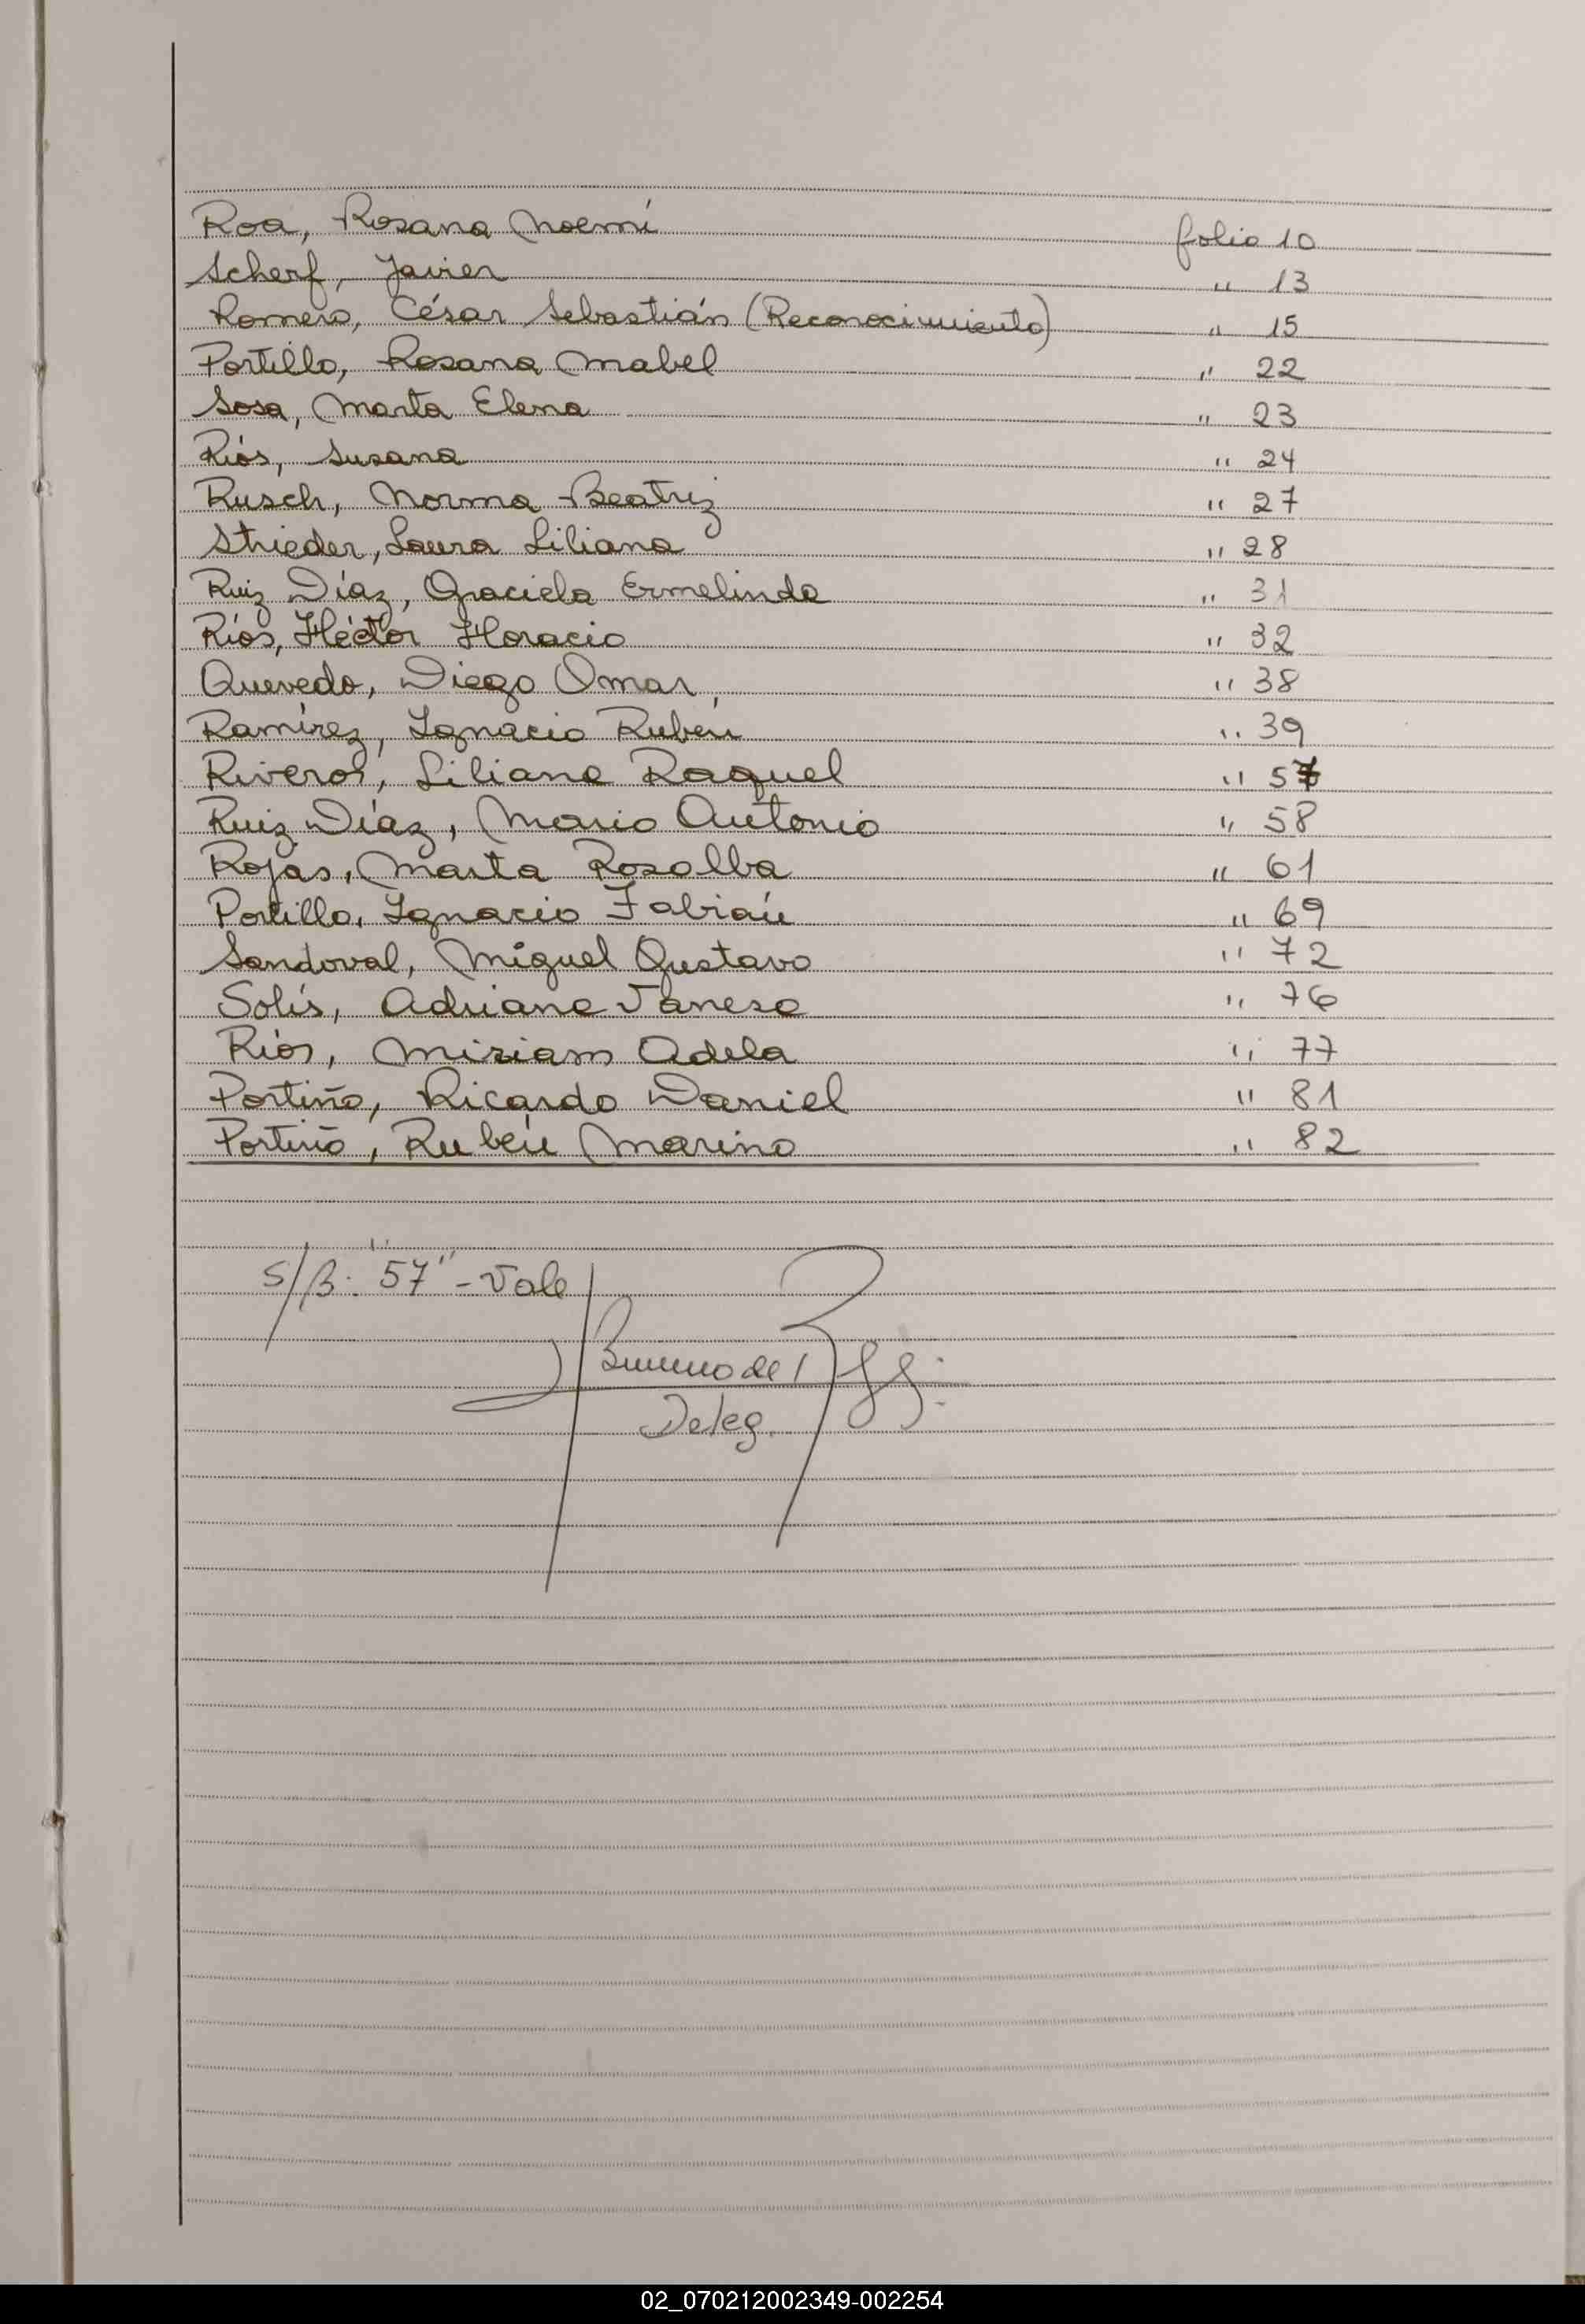 Roa, Rosana Noemí folio 10
Scherf, Javier " 13
Romero, César Sebastián (Reconocimiento) " 15
Portillo, Rosana Mabel " 22
Sosa, Marta Elena " 23
Ríos, Susana " 24
Rusch, Norma Beatriz " 27
Strieder, Laura Liliana " 28
Ruiz Díaz, Graciela Ermelinda " 31
Ríos, Héctor Horacio " 32
Quevedo, Diego Omar " 38
Ramírez, Ignacio Rubén " 39
Riveros, Liliana Raquel " 57
Ruiz Díaz, Mario Antonio " 58
Rojas, Marta Rosalba " 61
Portillo, Ignacio Fabián " 69
Sandoval, Miguel Gustavo " 72
Solís, Adriana Vanesa " 76
Ríos, Miriam Adela " 77
Portiño, Ricardo Daniel " 81
Portiño, Rubén Marino " 82
S/B: "57" - Vale
Deleg.
02_070212002349-002254